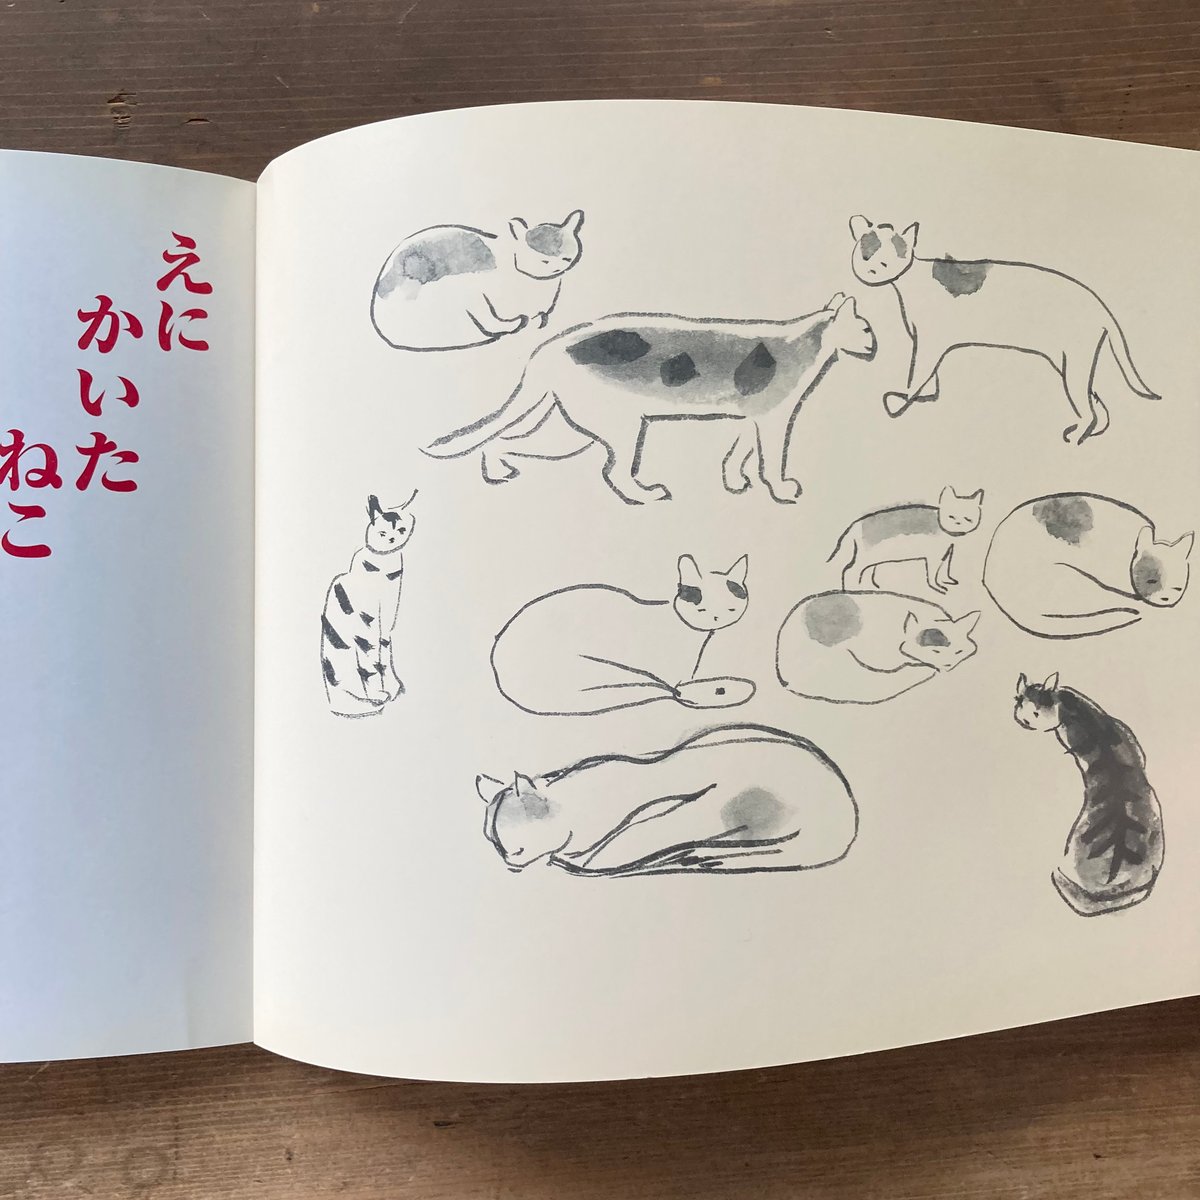 えに
かいた
ねこ